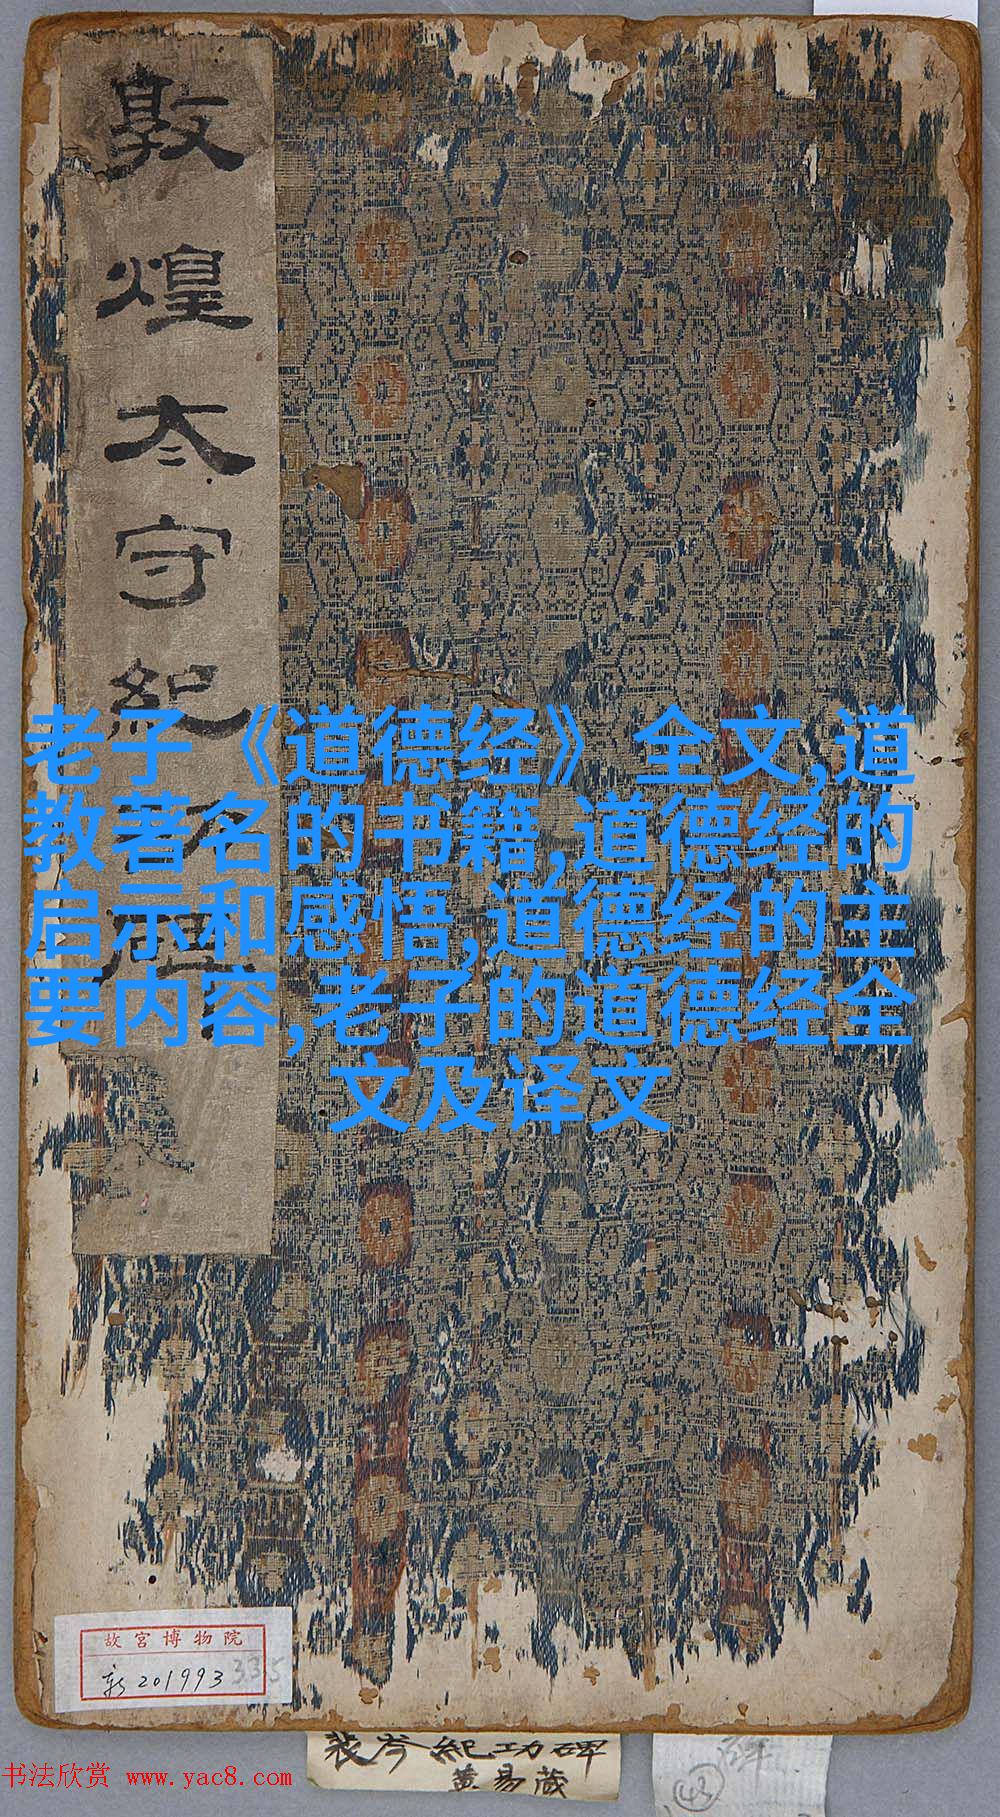 敦煌太守紀功碑
老子《道德经》全文,道
教著名的书籍,道德经的
启示和感悟,道德经的主
要内容,老子的道德经全
文及译文
故宫博物院
新201993
335
裴岑紀功碑
黄易藏
48
书法欣赏 www.yac8.com